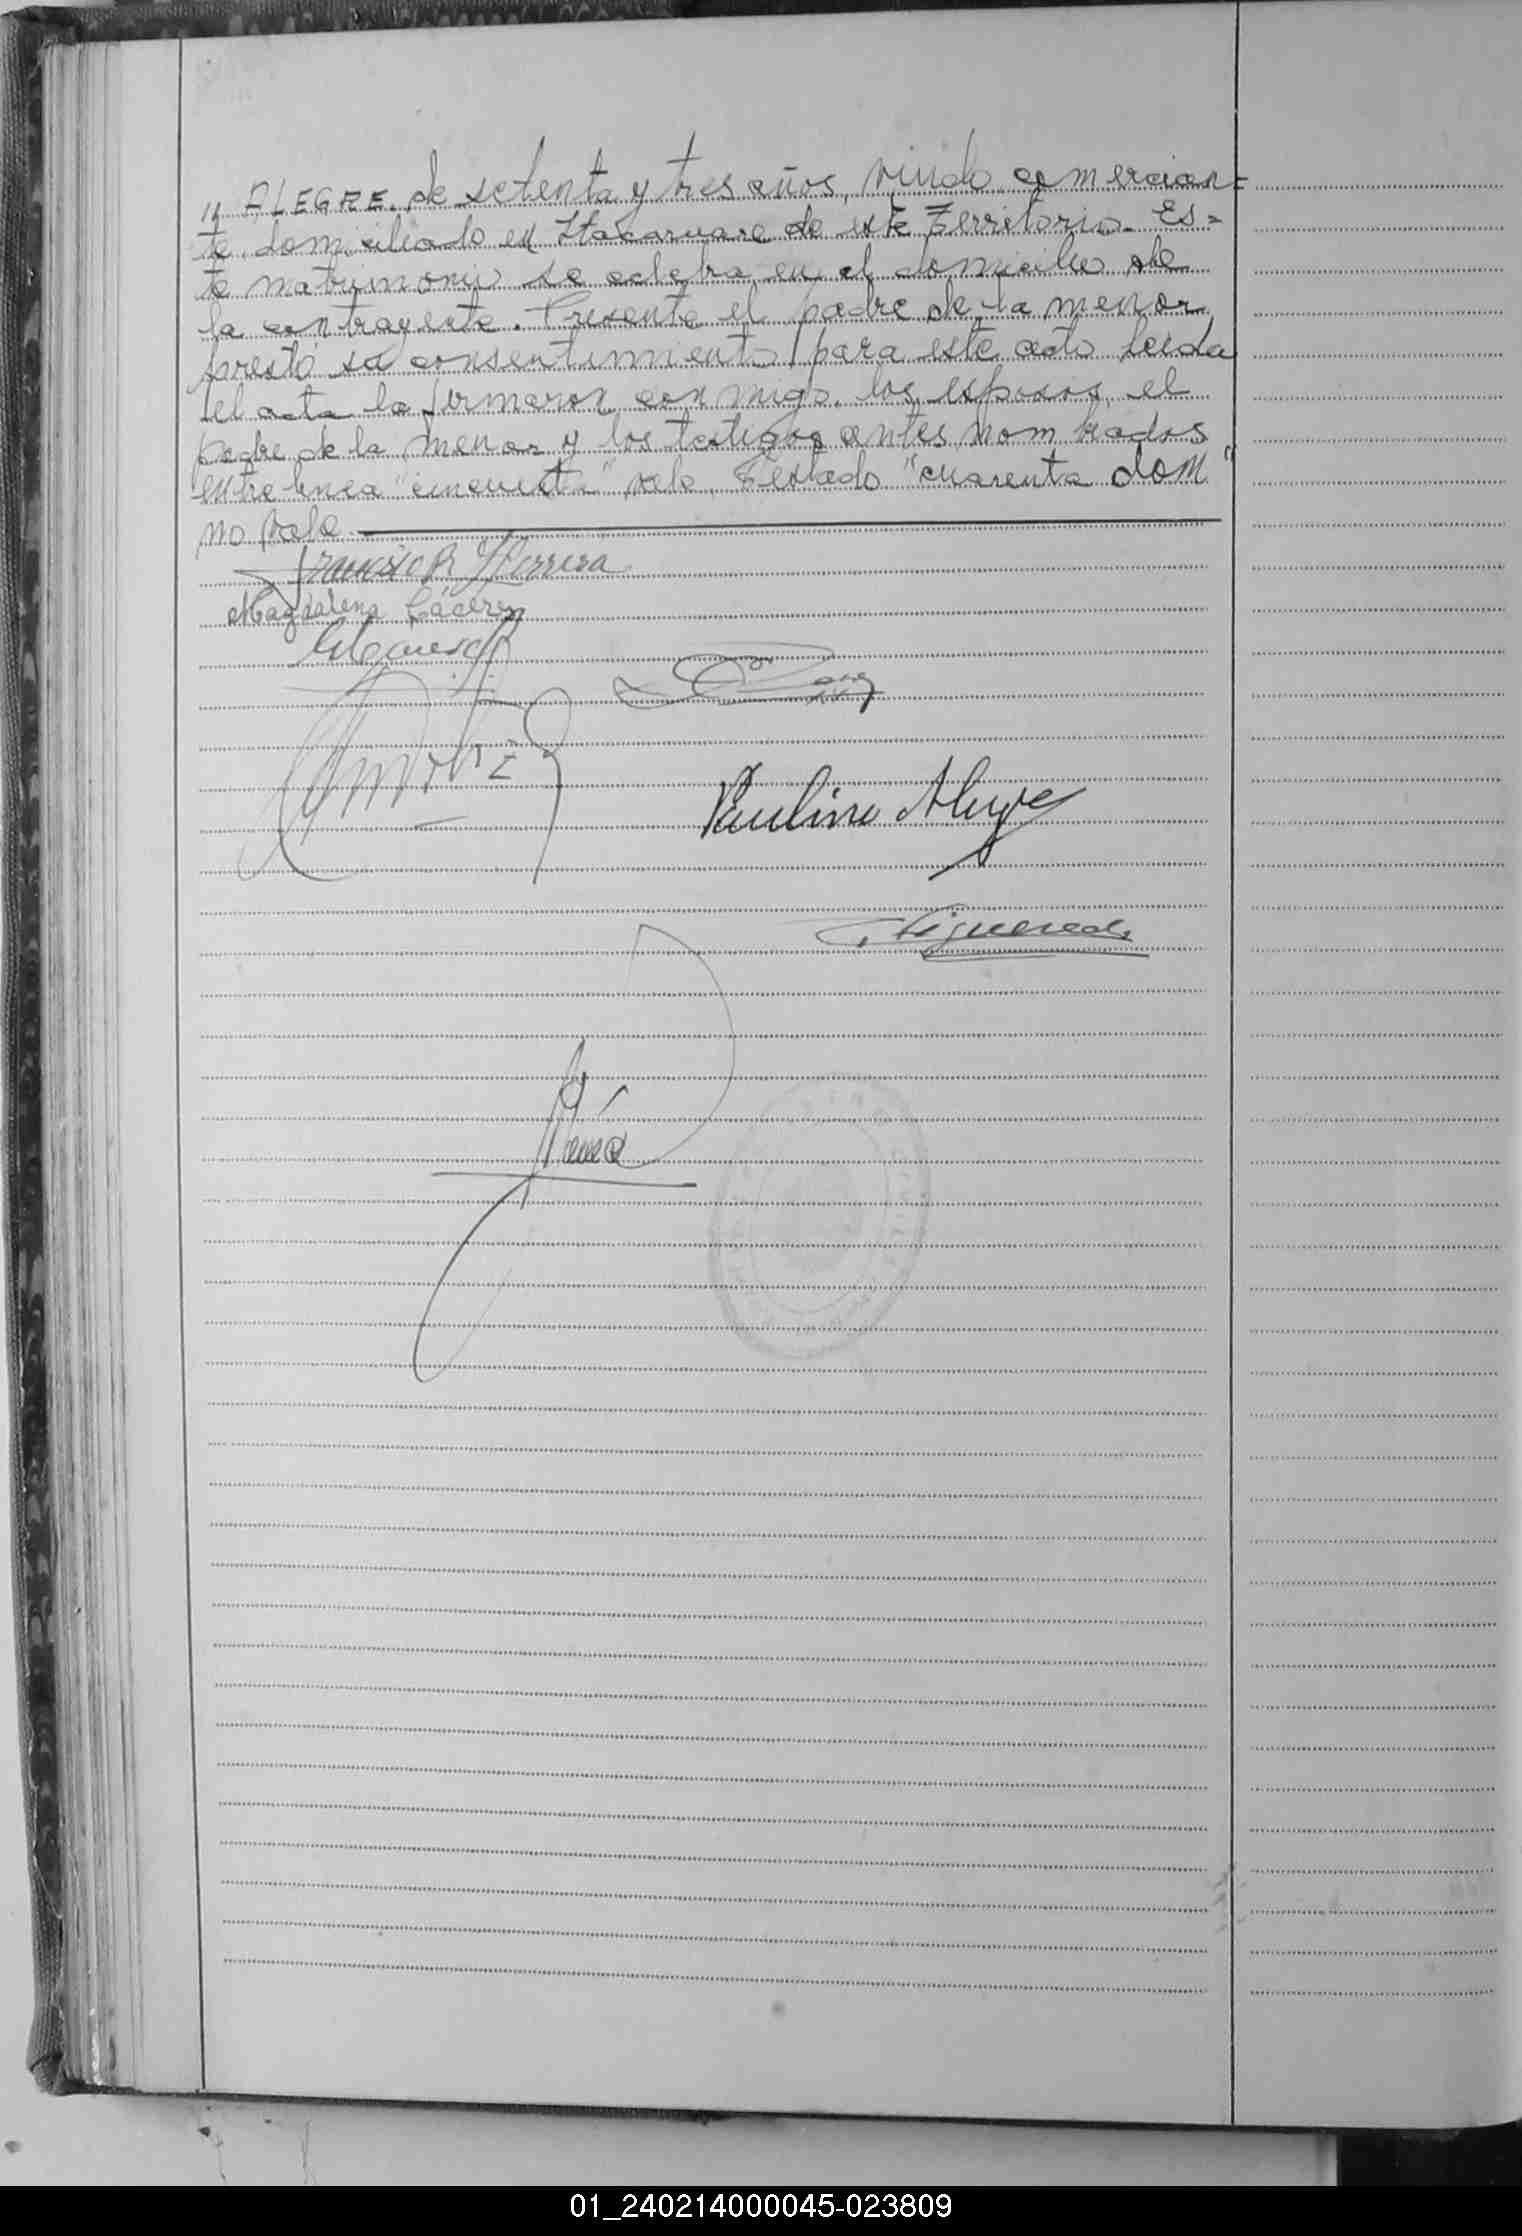 " ALEGRE. de setenta y tres años, viudo comercian=
te domiciliado en Itacaruare de este Territorio. Es=
te matrimonio se celebra en el domicilio de
la contrayente. Presente el padre de la menor
prestó su consentimiento para este acto leida
el acta la firmaron conmigo, los esposos, el
padre de la menor y los testigos antes nombrados
entre linea "cincuenta" vale. Testado "cuarenta dom"
no vale.
Francisco R Herrera
Magdalena Cáceres
Paulino Alegre
Figueredo
01_240214000045-023809